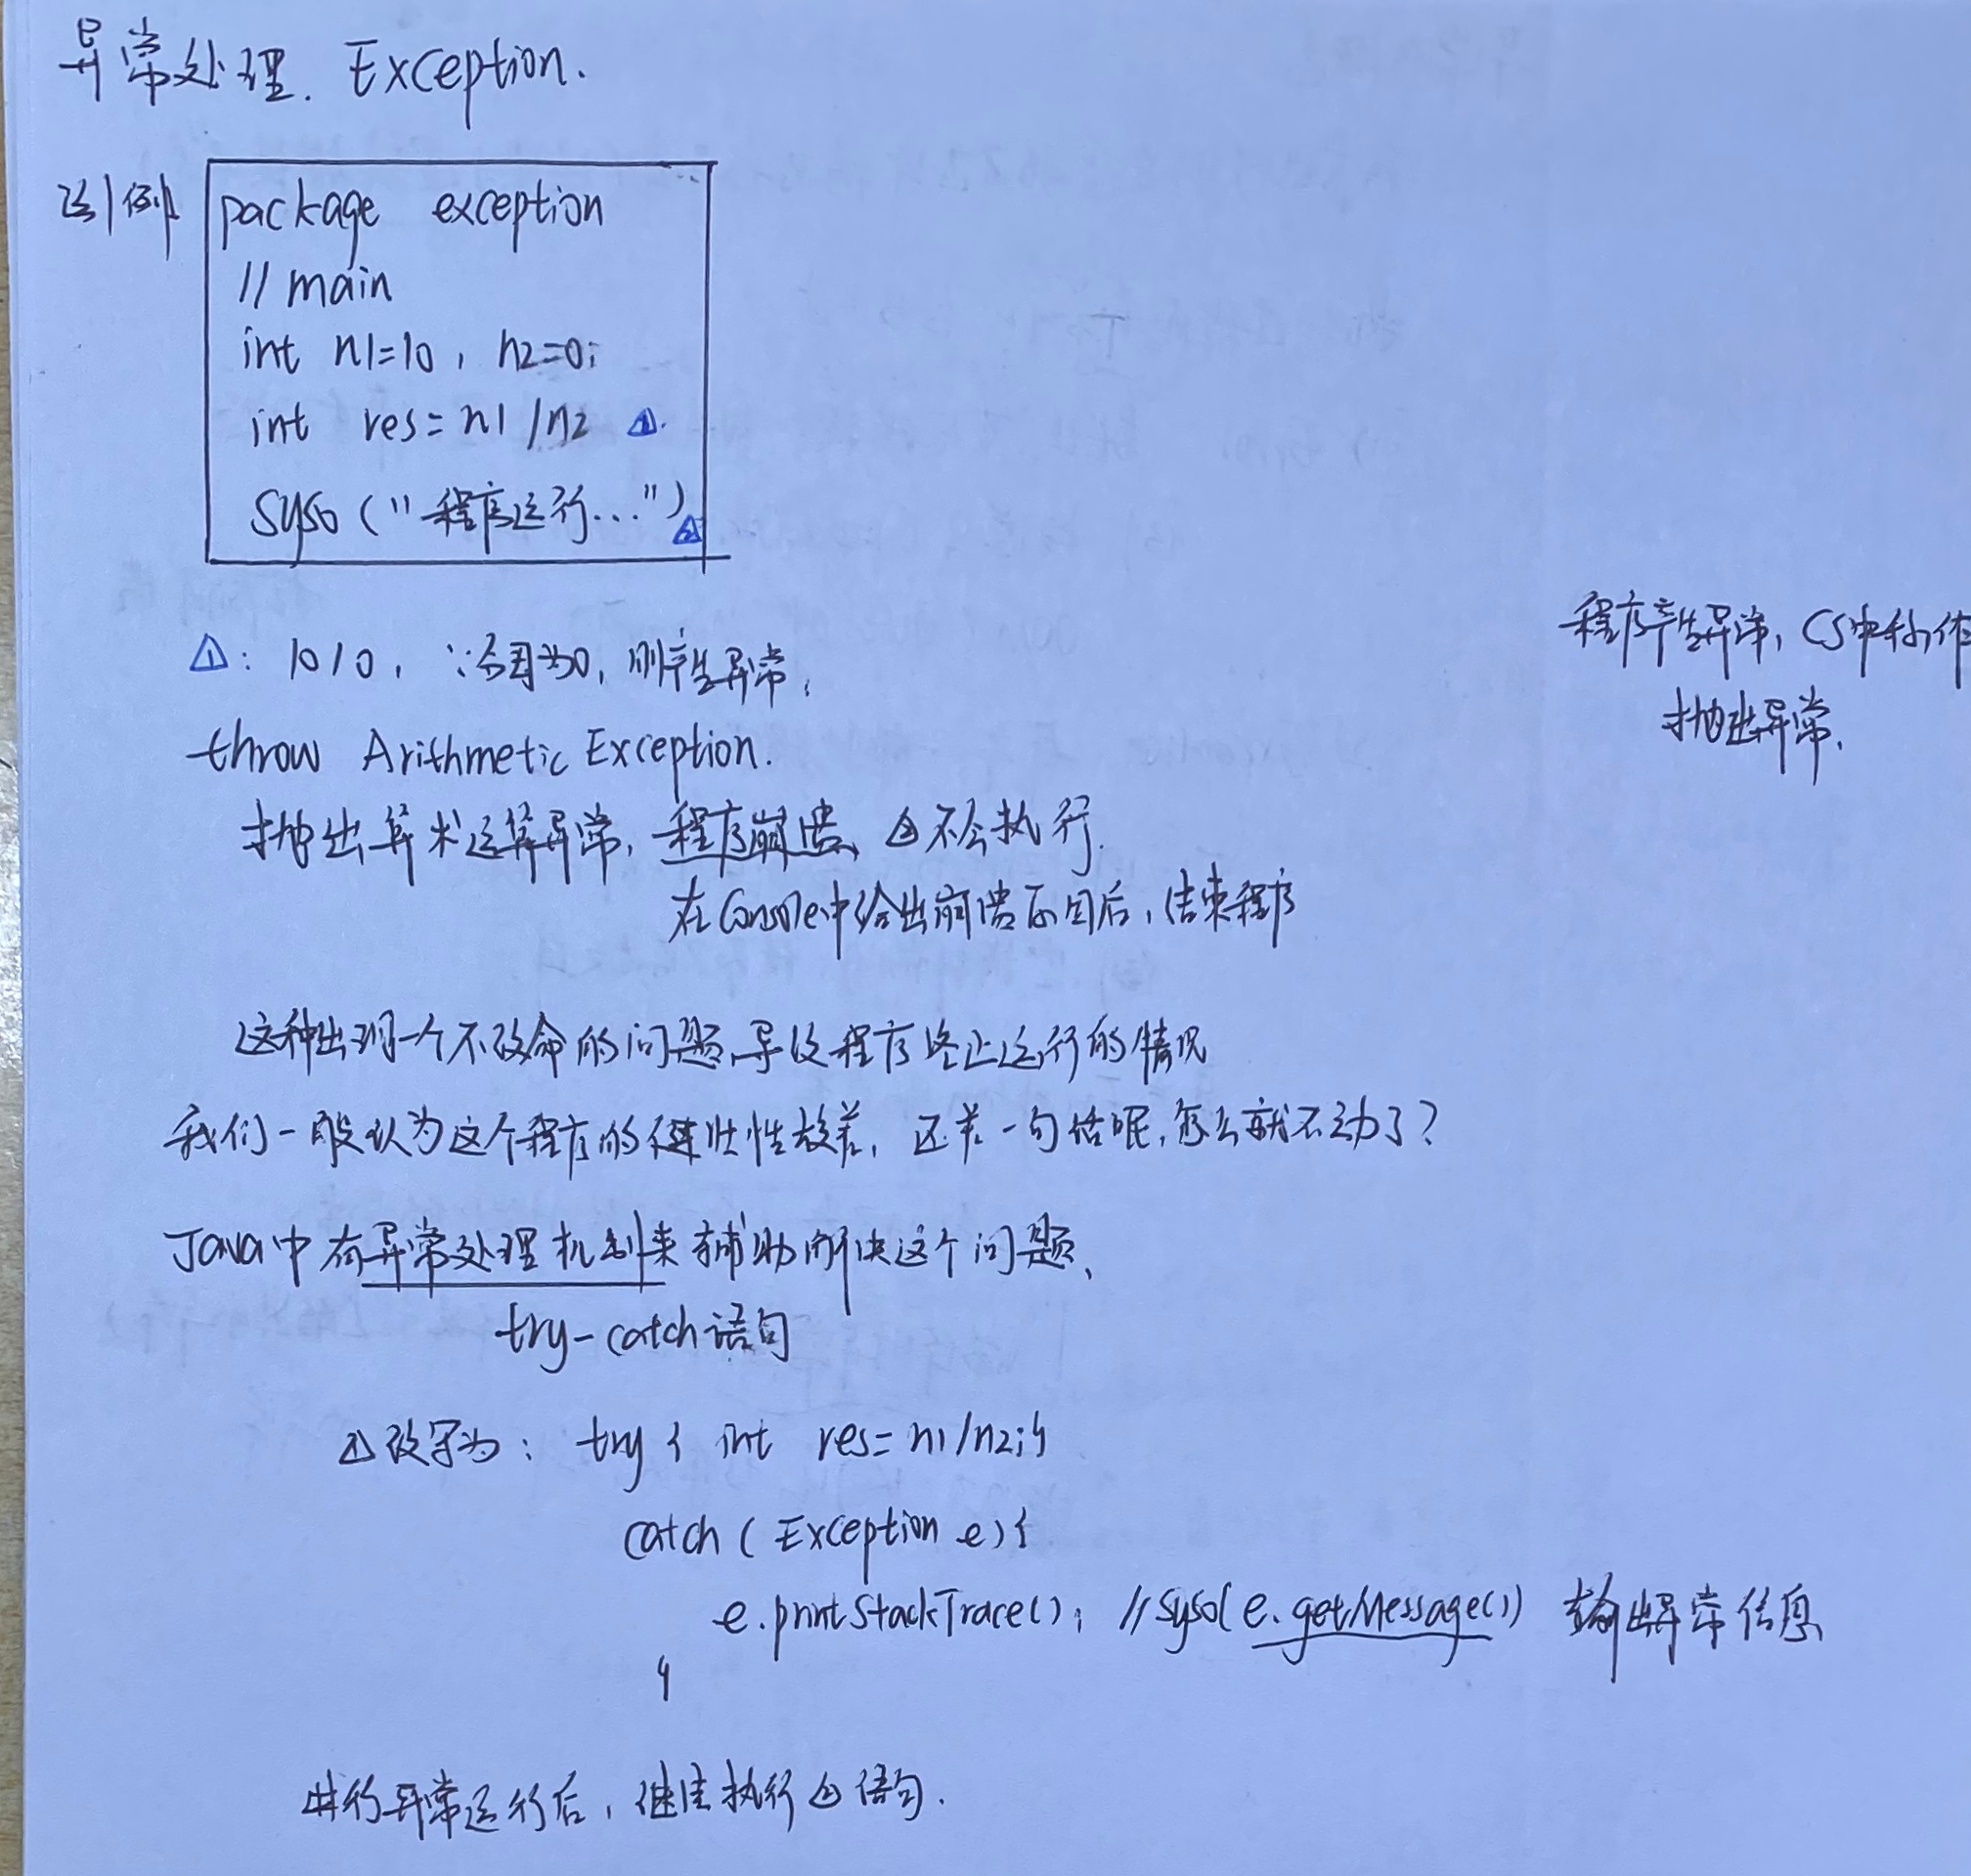 异常处理. Exception.
引例
package exception
// main
int n1=10, n2=0;
int res=n1/n2 △1.
syso("程序运行...") △2
△1: 10/0, ∵分母为0, 则产生异常,
throw Arithmetic Exception.
程序产生异常, CS中称作
抛出异常.
抛出算术运算异常, 程序崩溃、△2不会执行.
在Console中给出崩溃后, 结束程序
这种出现一个不致命的问题,导致程序终止运行的情况
我们一般认为这个程序的健壮性较差, 还差一句话呢,怎么就不动了?
Java中有异常处理机制来辅助解决这个问题、
try-catch语句
△1改写为: try{ int res=n1/n2;}
catch(Exception e){
e.printStackTrace(); //syso(e.getMessage()) 输出异常信息
}
进行异常运行后, 继续执行△2语句.